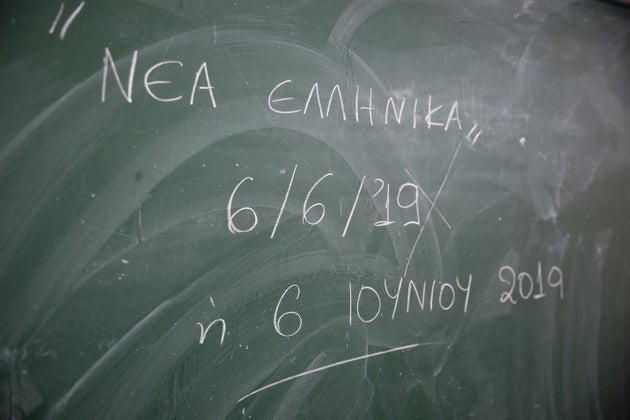 " ΝΕΑ ΕΛΛΗΝΙΚΑ "
6/6/'19
ή 6 ΙΟΥΝΙΟΥ 2019